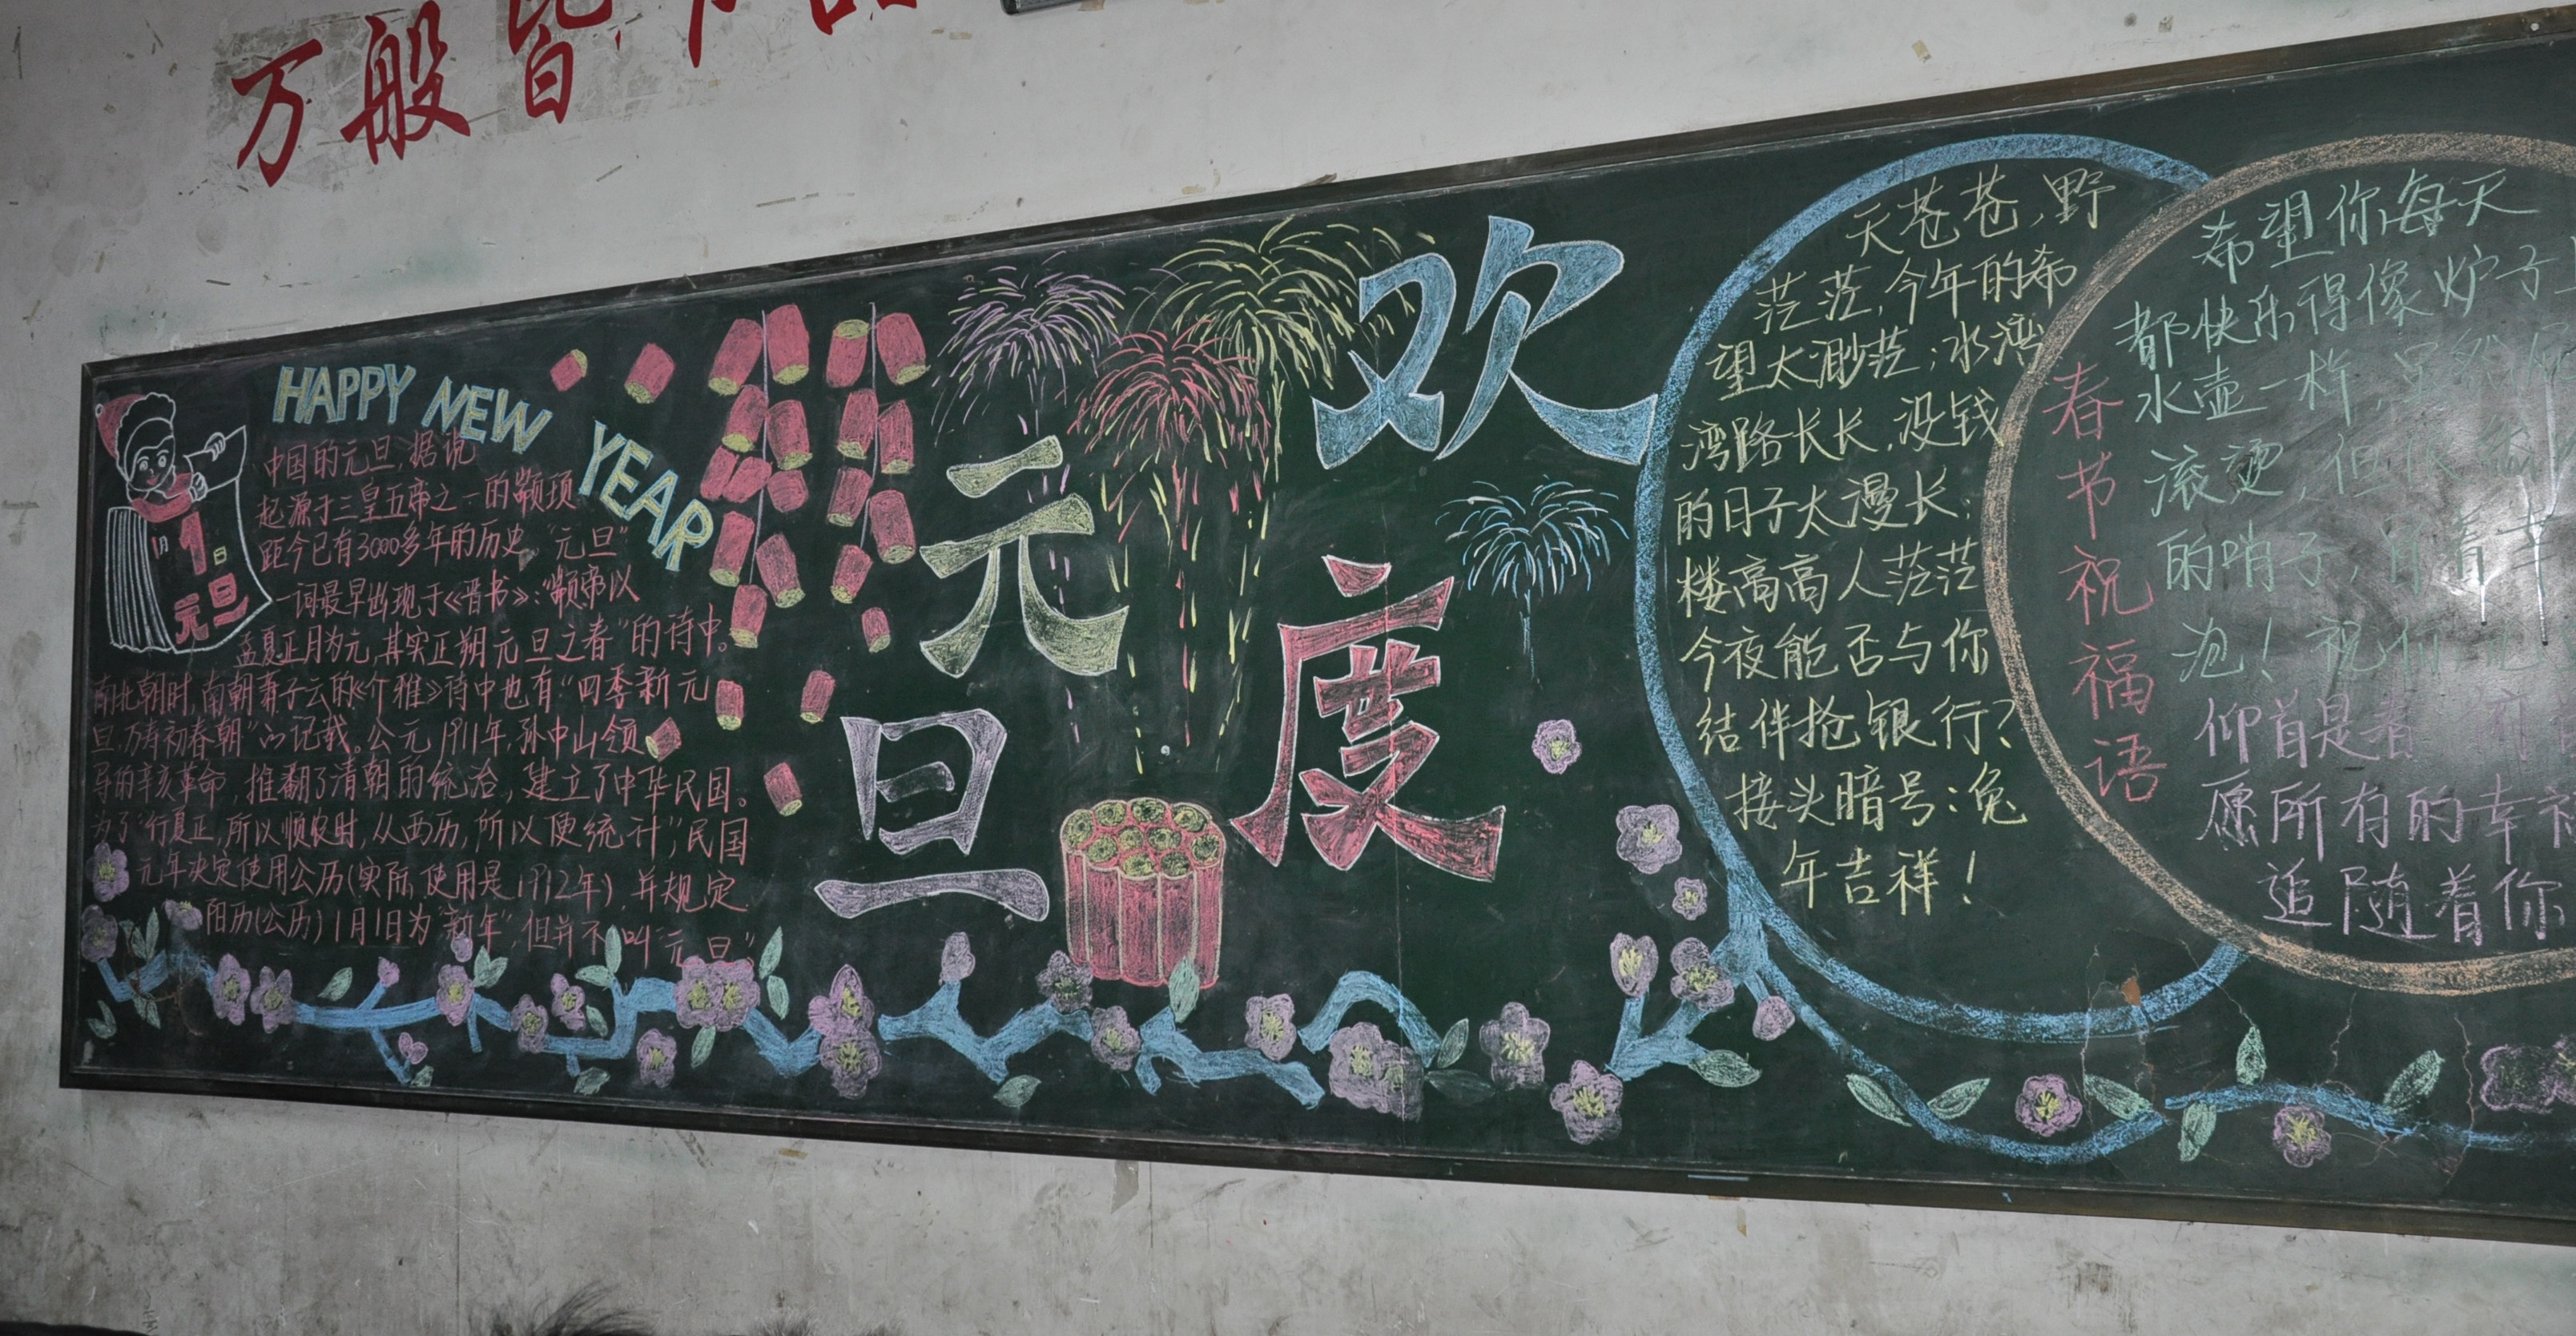 万般皆下品
HAPPY NEW YEAR
1月1日
元旦
中国的元旦,据说
起源于三皇五帝之一的颛顼
距今已有3000多年的历史。“元旦”
一词最早出现于《晋书》:“颛帝以
孟夏正月为元,其实正朔元旦之春”的诗中。
南北朝时,南朝萧子云的《介雅》诗中也有“四季新元
旦,万寿初春朝”的记载。公元1911年,孙中山领
导的辛亥革命,推翻了清朝的统治,建立了中华民国。
为了“行夏正,所以顺农时,从西历,所以便统计”,民国
元年决定使用公历(实际使用是1912年),并规定
阳历(公历)1月1日为“新年”,但并不叫“元旦”
欢度
元旦
天苍苍,野
茫茫,今年的希
望太渺茫;水湾
湾路长长,没钱
的日子太漫长;
楼高高人茫茫
今夜能否与你
结伴抢银行?
接头暗号:兔
年吉祥!
春节祝福语
希望你每天
都快乐得像炉子
水壶一样,虽然
滚烫,但依然
的哨子,冒着幸
泡!祝你
仰首是春
愿所有的幸福
追随着你